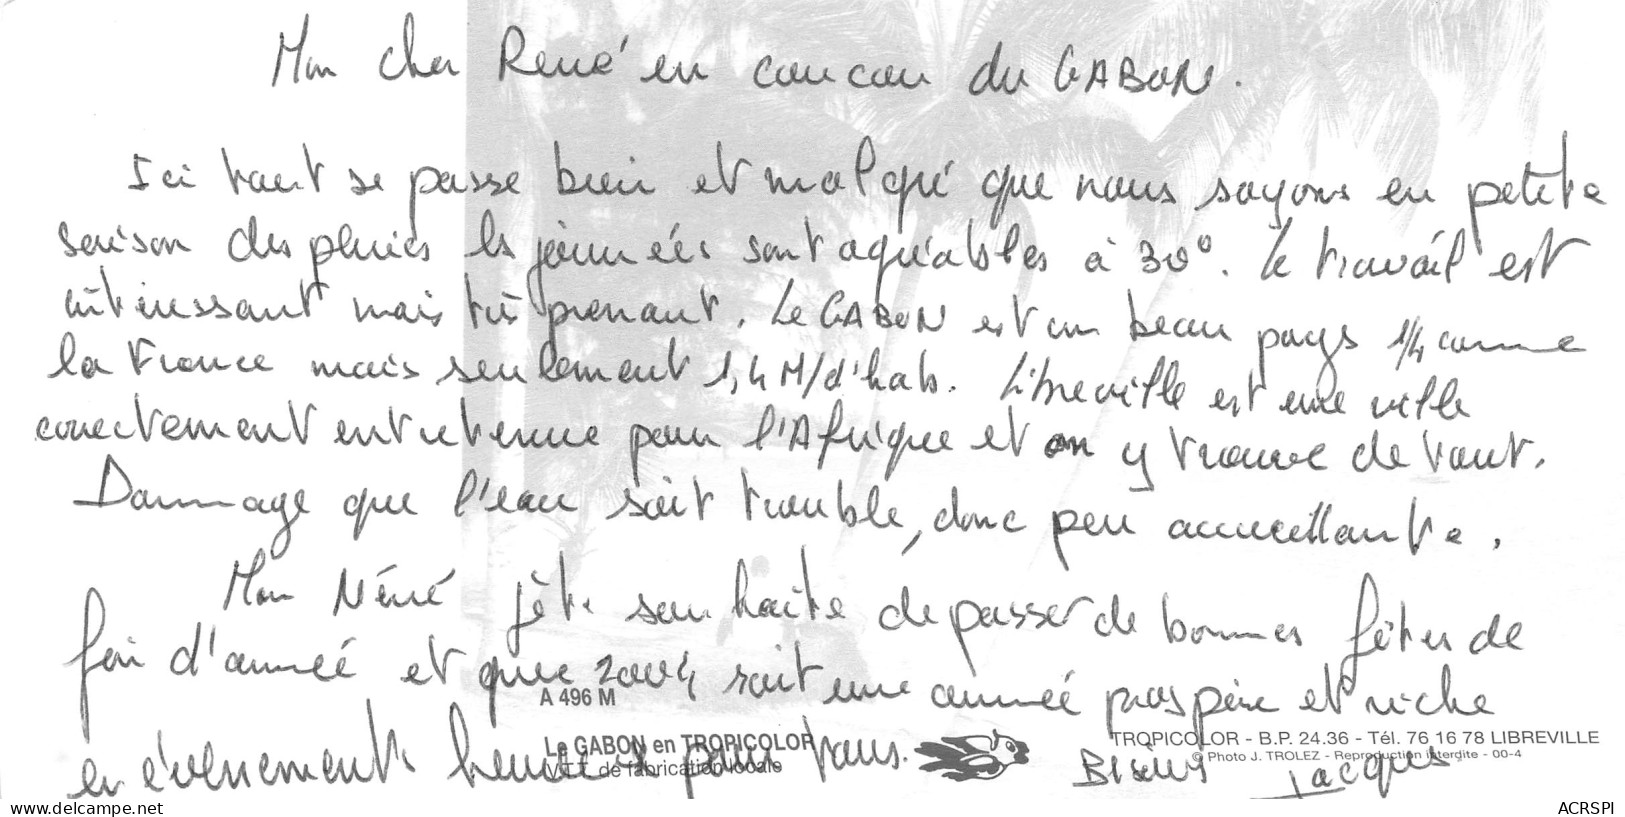 Mon cher René un coucou du GABON.
Ici tout se passe bien et malgré que nous soyons en petite
saison des pluies les journées sont agréables à 30°. Le travail est
intéressant mais très prenant. Le GABON est un beau pays 1/4 comme
la France mais seulement 1,4 M/d'hab. Libreville est une ville
correctement entretenue pour l'Afrique et on y trouve de tout.
Dommage que l'eau soit trouble, donc peu accueillante.
Mon Néné je te souhaite de passer de bonnes fêtes de
fin d'année et que 2004 soit une année prospère et riche
en événements heureux pour tous.
Bisous Jacques
A 496 M
Le GABON en TROPICOLOR
VTT de fabrication locale
TROPICOLOR - B.P. 24.36 - Tél. 76 16 78 LIBREVILLE
© Photo J. TROLEZ - Reproduction interdite - 00-4
www.delcampe.net
ACRSPI